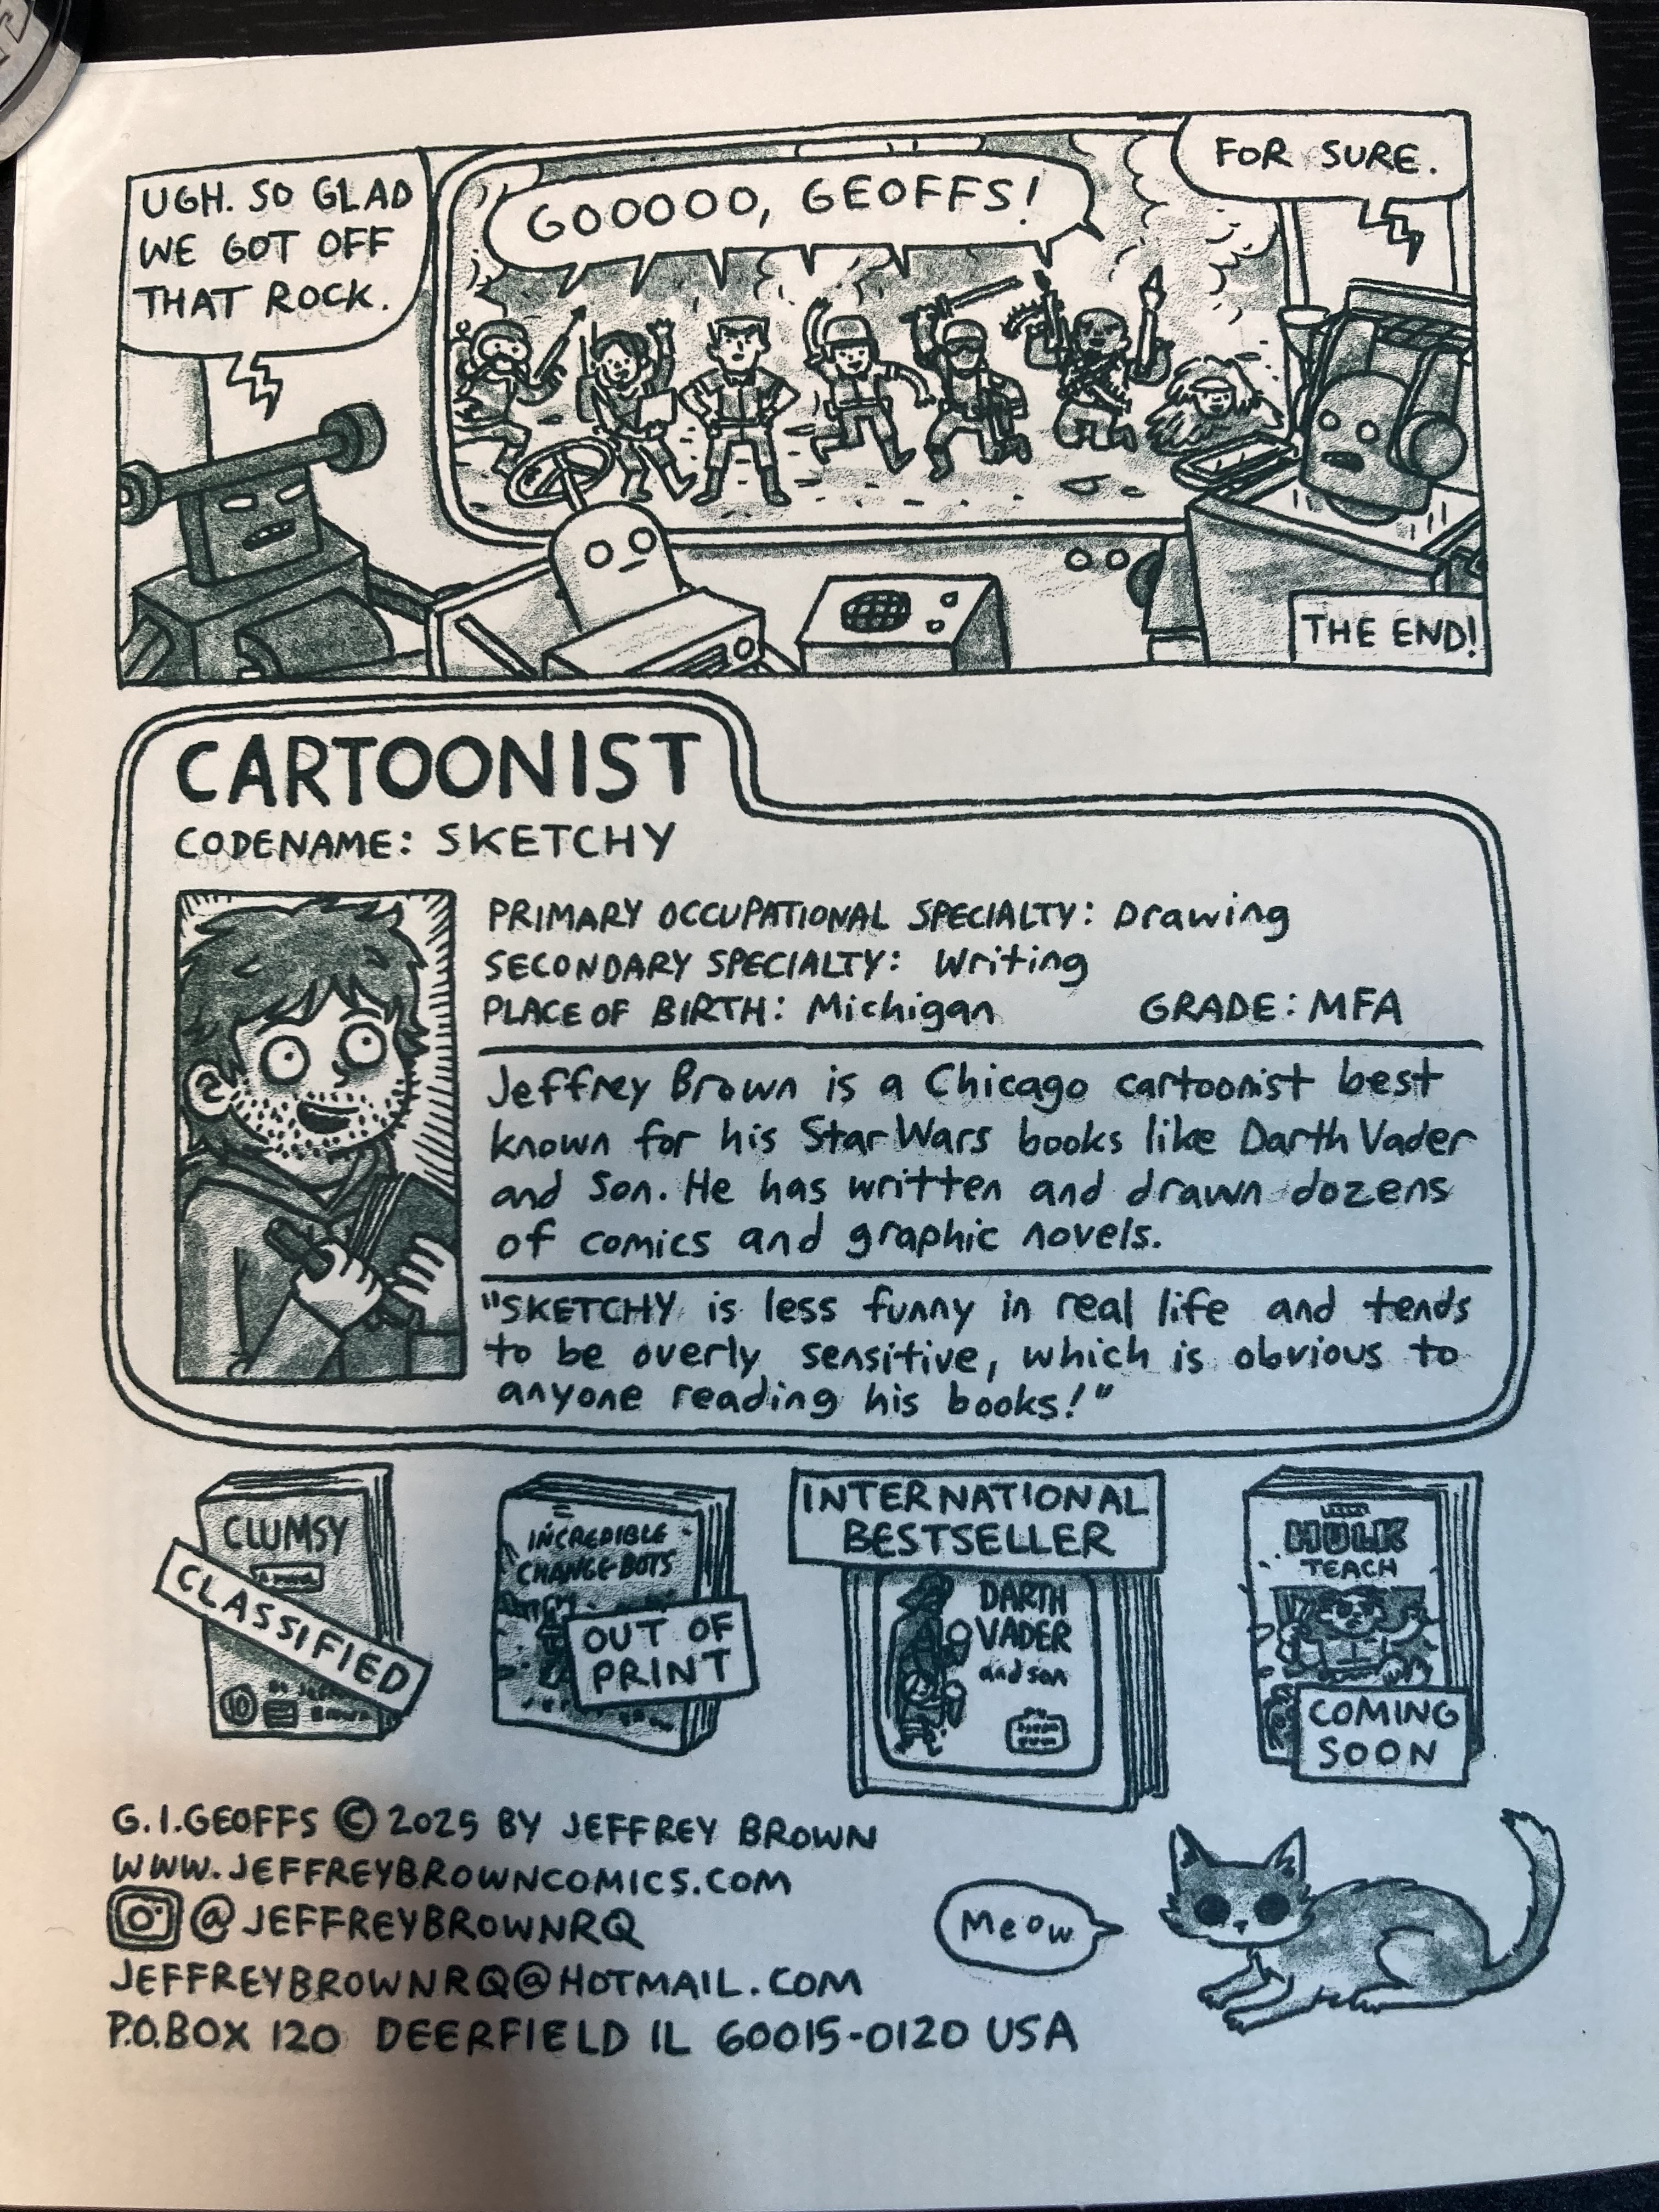 UGH. SO GLAD
WE GOT OFF
THAT ROCK.
GOOOOO, GEOFFS!
FOR SURE.
THE END!
CARTOONIST
CODENAME: SKETCHY
PRIMARY OCCUPATIONAL SPECIALTY: Drawing
SECONDARY SPECIALTY: Writing
PLACE OF BIRTH: Michigan GRADE: MFA
Jeffrey Brown is a Chicago cartoonist best
known for his Star Wars books like Darth Vader
and Son. He has written and drawn dozens
of comics and graphic novels.
"SKETCHY is less funny in real life and tends
to be overly sensitive, which is obvious to
anyone reading his books!"
CLUMSY
CLASSIFIED
Brown
INCREDIBLE
CHANGE-BOTS
OUT OF
PRINT
INTERNATIONAL
BESTSELLER
DARTH
VADER
and son
HULK
TEACH
COMING
SOON
G.I.GEOFFS © 2025 BY JEFFREY BROWN
WWW.JEFFREYBROWNCOMICS.COM
@JEFFREYBROWNRQ
JEFFREYBROWNRQ@HOTMAIL.COM
P.O.BOX 120 DEERFIELD IL 60015-0120 USA
Meow